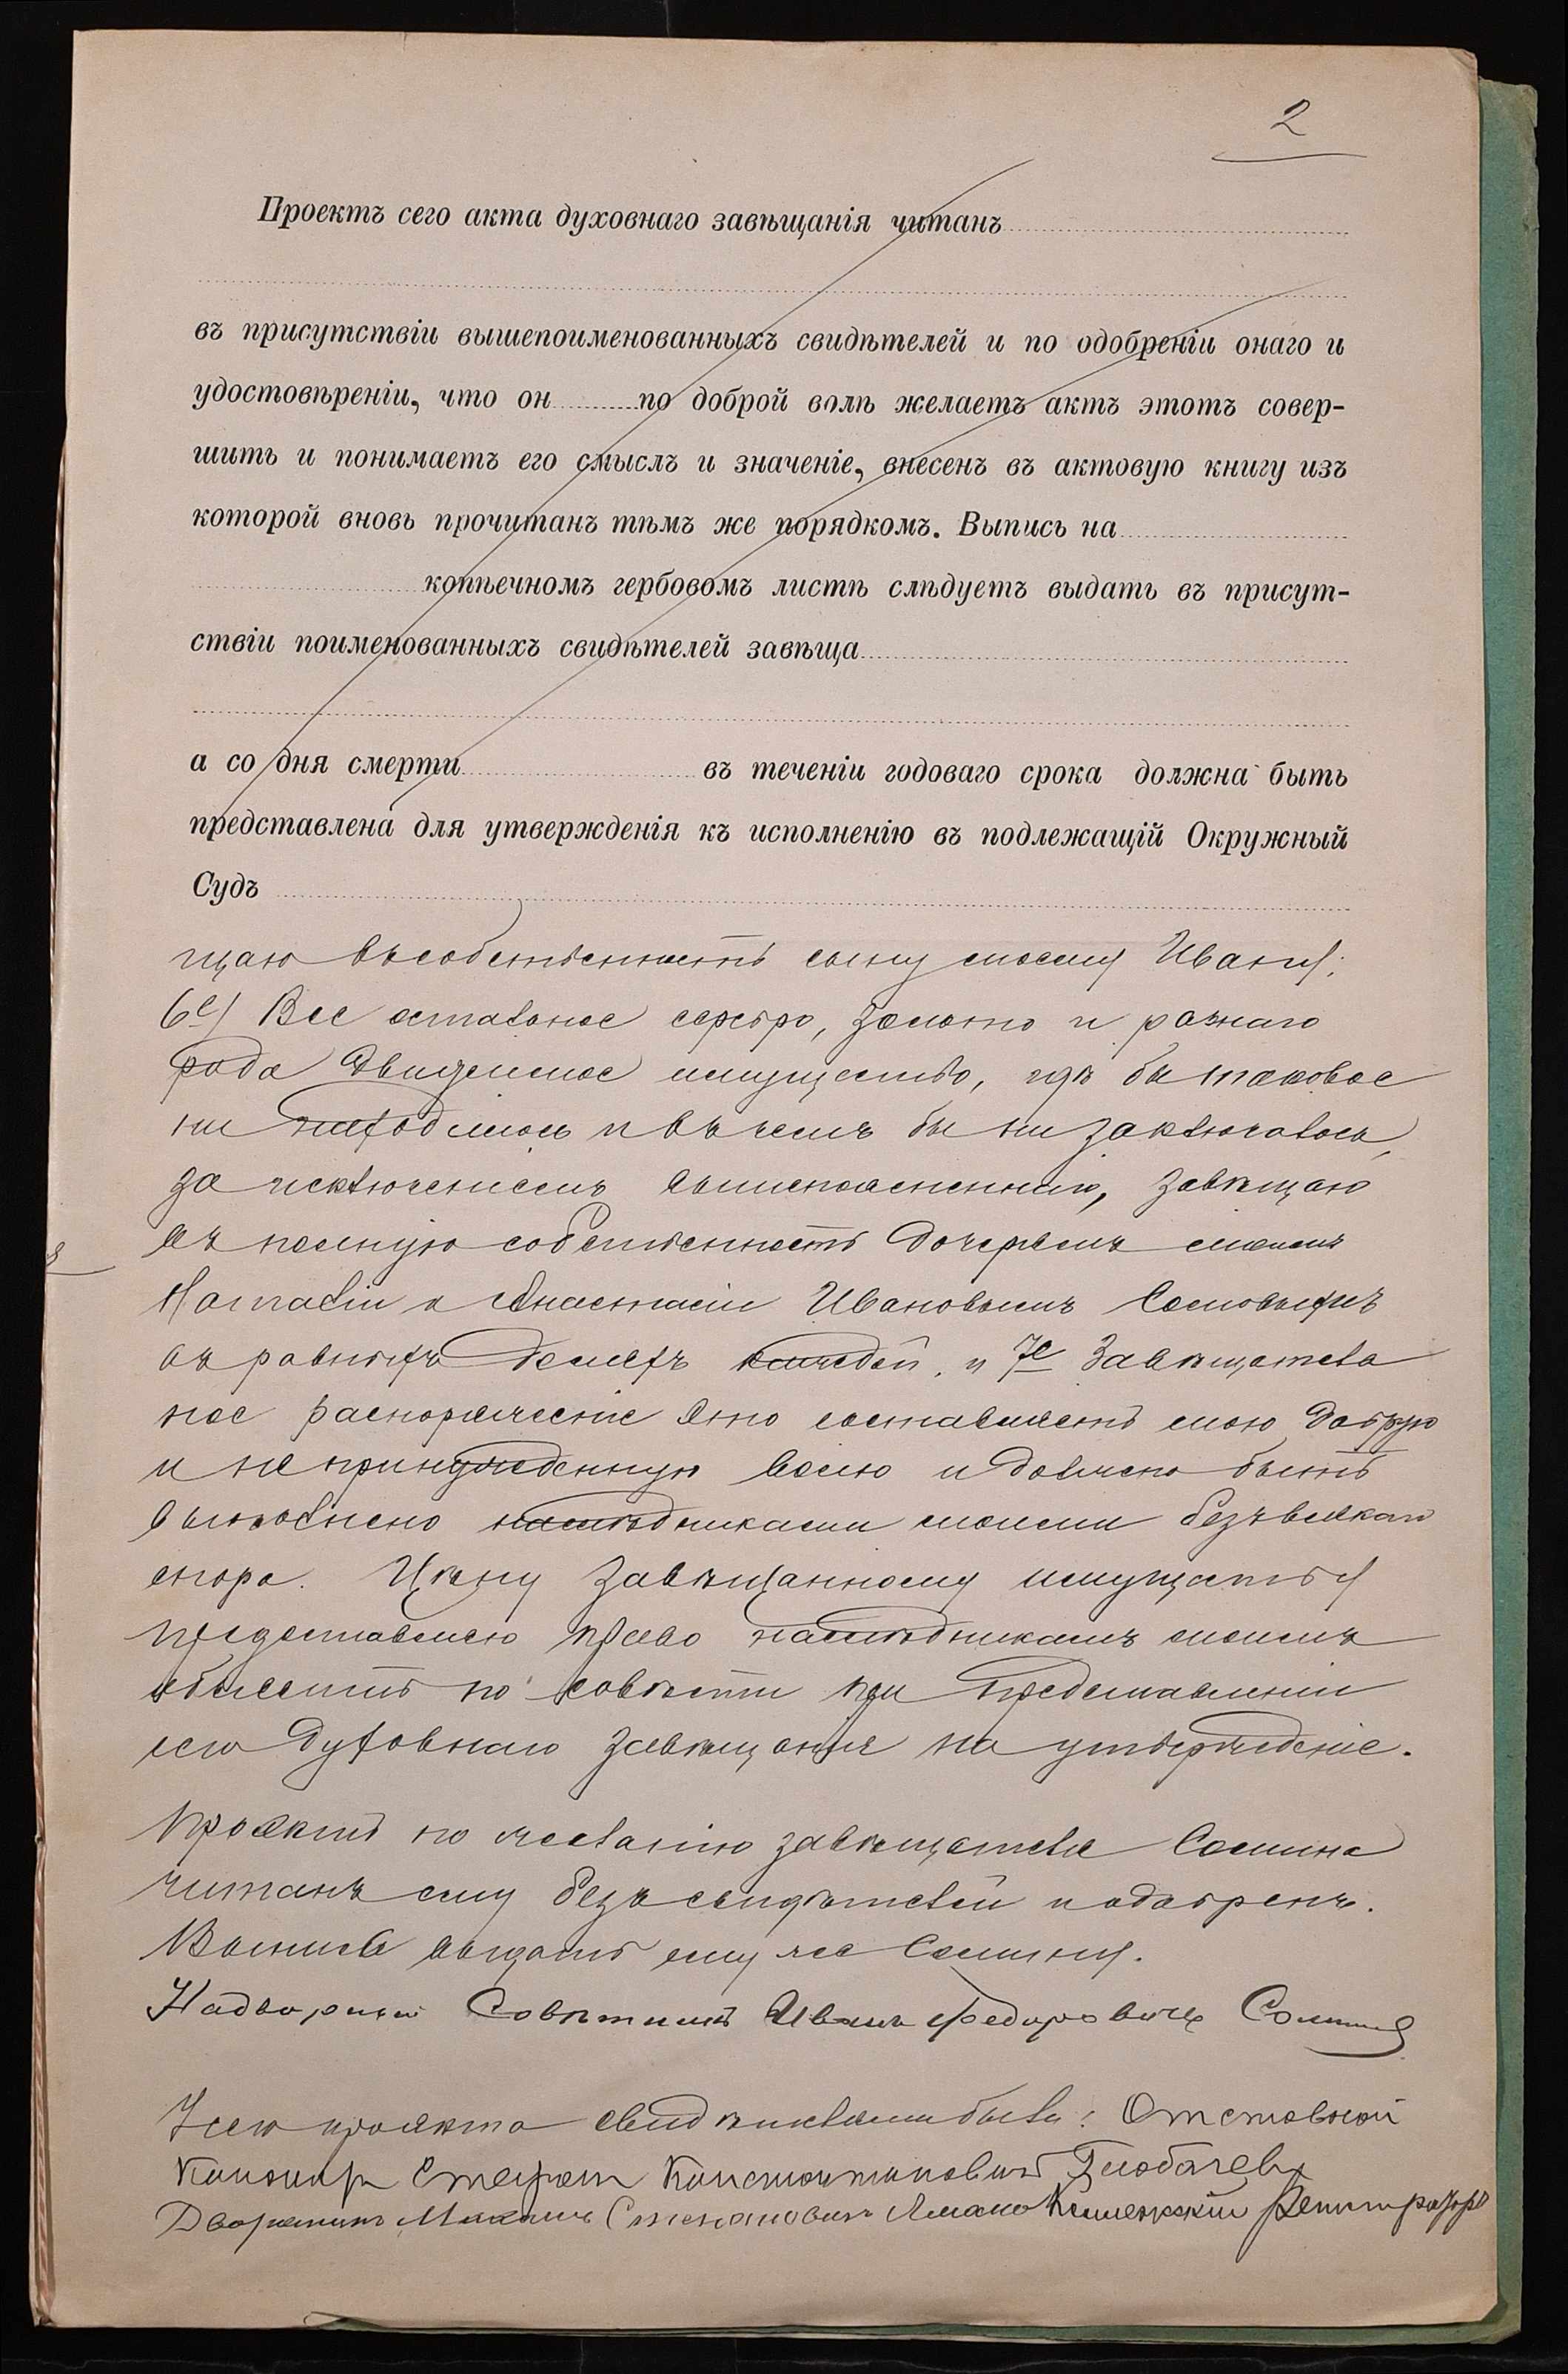 2
Проектъ сего акта духовнаго завѣщанія читанъ
въ присутствіи вышепоименованныхъ свидѣтелей и по одобреніи онаго и
удостовѣреніи, что он по доброй волѣ желаетъ актъ этотъ совер-
шить и понимаетъ его смыслъ и значеніе, внесенъ въ актовую книгу изъ
которой вновь прочитанъ тѣмъ же порядкомъ. Выпись на
копѣечномъ гербовомъ листѣ слѣдуетъ выдать въ присут-
ствіи поименованныхъ свидѣтелей завѣща
а со дня смерти въ теченіи годоваго срока должна быть
представлена для утвержденія къ исполненію въ подлежащій Окружный
Судъ
щаю въ собственность сыну моему Ивану;
6е) Все остальное серебро, золото и разнаго
рода движимое имущество, гдѣ бы таковое
ни находилось и въ чемъ бы ни заключалось,
за исключеніемъ вышепоясненнаго, завѣщаю
въ полную собственность дочерямъ моимъ
Наталіи и Анастасіи Ивановымъ
въ равныхъ доляхъ каждой, и 7е Завѣщатель
ное распоряженіе это составляетъ мою добрую
и непринужденную волю и должно быть
выполнено наслѣдниками моими безъ всякаго
спора. Цѣну завѣщанному имуществу
предоставляю право наслѣдникамъ моимъ
объявить по совѣсти при представленіи
сего духовнаго завѣщанія на утвержденіе.
Проэктъ по желанію завѣщателя Сомина
читанъ ему безъ свидѣтелей и одобренъ.
Выпись выдать ему же Сомину.
Надворный Совѣтникъ Иванъ Федоровичъ Соминъ
У сего проэкта свидѣтелями были: Отставной
Стефанъ Константиновичъ
Дворянинъ Степановичъ